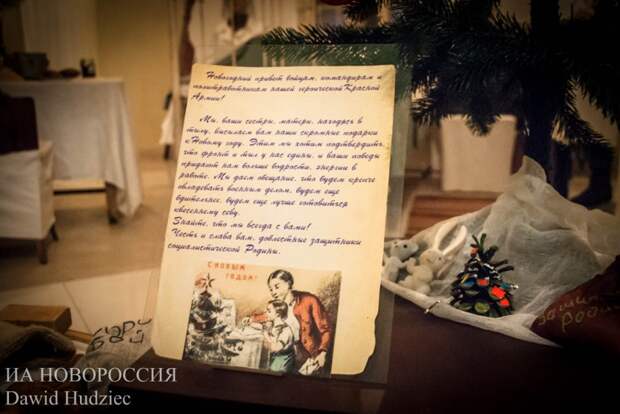 Новогодний привет бойцам, командирам и
политработникам нашей героической Красной
Армии!
Мы, ваши сестры, матери, находясь в
тылу, высылаем вам наши скромные подарки
к Новому году. Этим мы хотим подтвердить,
что фронт и тыл у нас едины, и ваши победы
придают нам больше бодрости, энергии в
работе. Мы даем обещание, что будем крепче
овладевать военным делом, будем еще
бдительнее, будем еще лучше готовиться
к весеннему севу.
Знайте, что мы всегда с вами!
Честь и слава вам, доблестные защитники
социалистической Родины.
С НОВЫМ
ГОДОМ!
ИА НОВОРОССИЯ
Dawid Hudziec